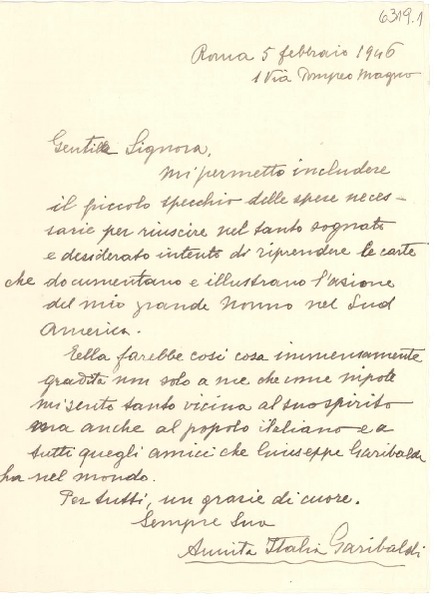 6319.1
Roma 5 febbraio 1946
1 Via Pompeo Magno
Gentile Signora,
Mi permetto includere
il piccolo specchio delle spese neces-
sarie per riuscire nel tanto sognato
e desiderato intento di riprendere le carte
che documentano e illustrano l'azione
del mio grande Nonno nel Sud
America.
Ella farebbe così cosa immensamente
gradita non solo a me che come nipote
mi sento tanto vicina al suo spirito
ma anche al popolo italiano e a
tutti quegli amici che Giuseppe Garibaldi
ha nel mondo.
Per tutti, un grazie di cuore.
Sempre Sua
Annita Italia Garibaldi